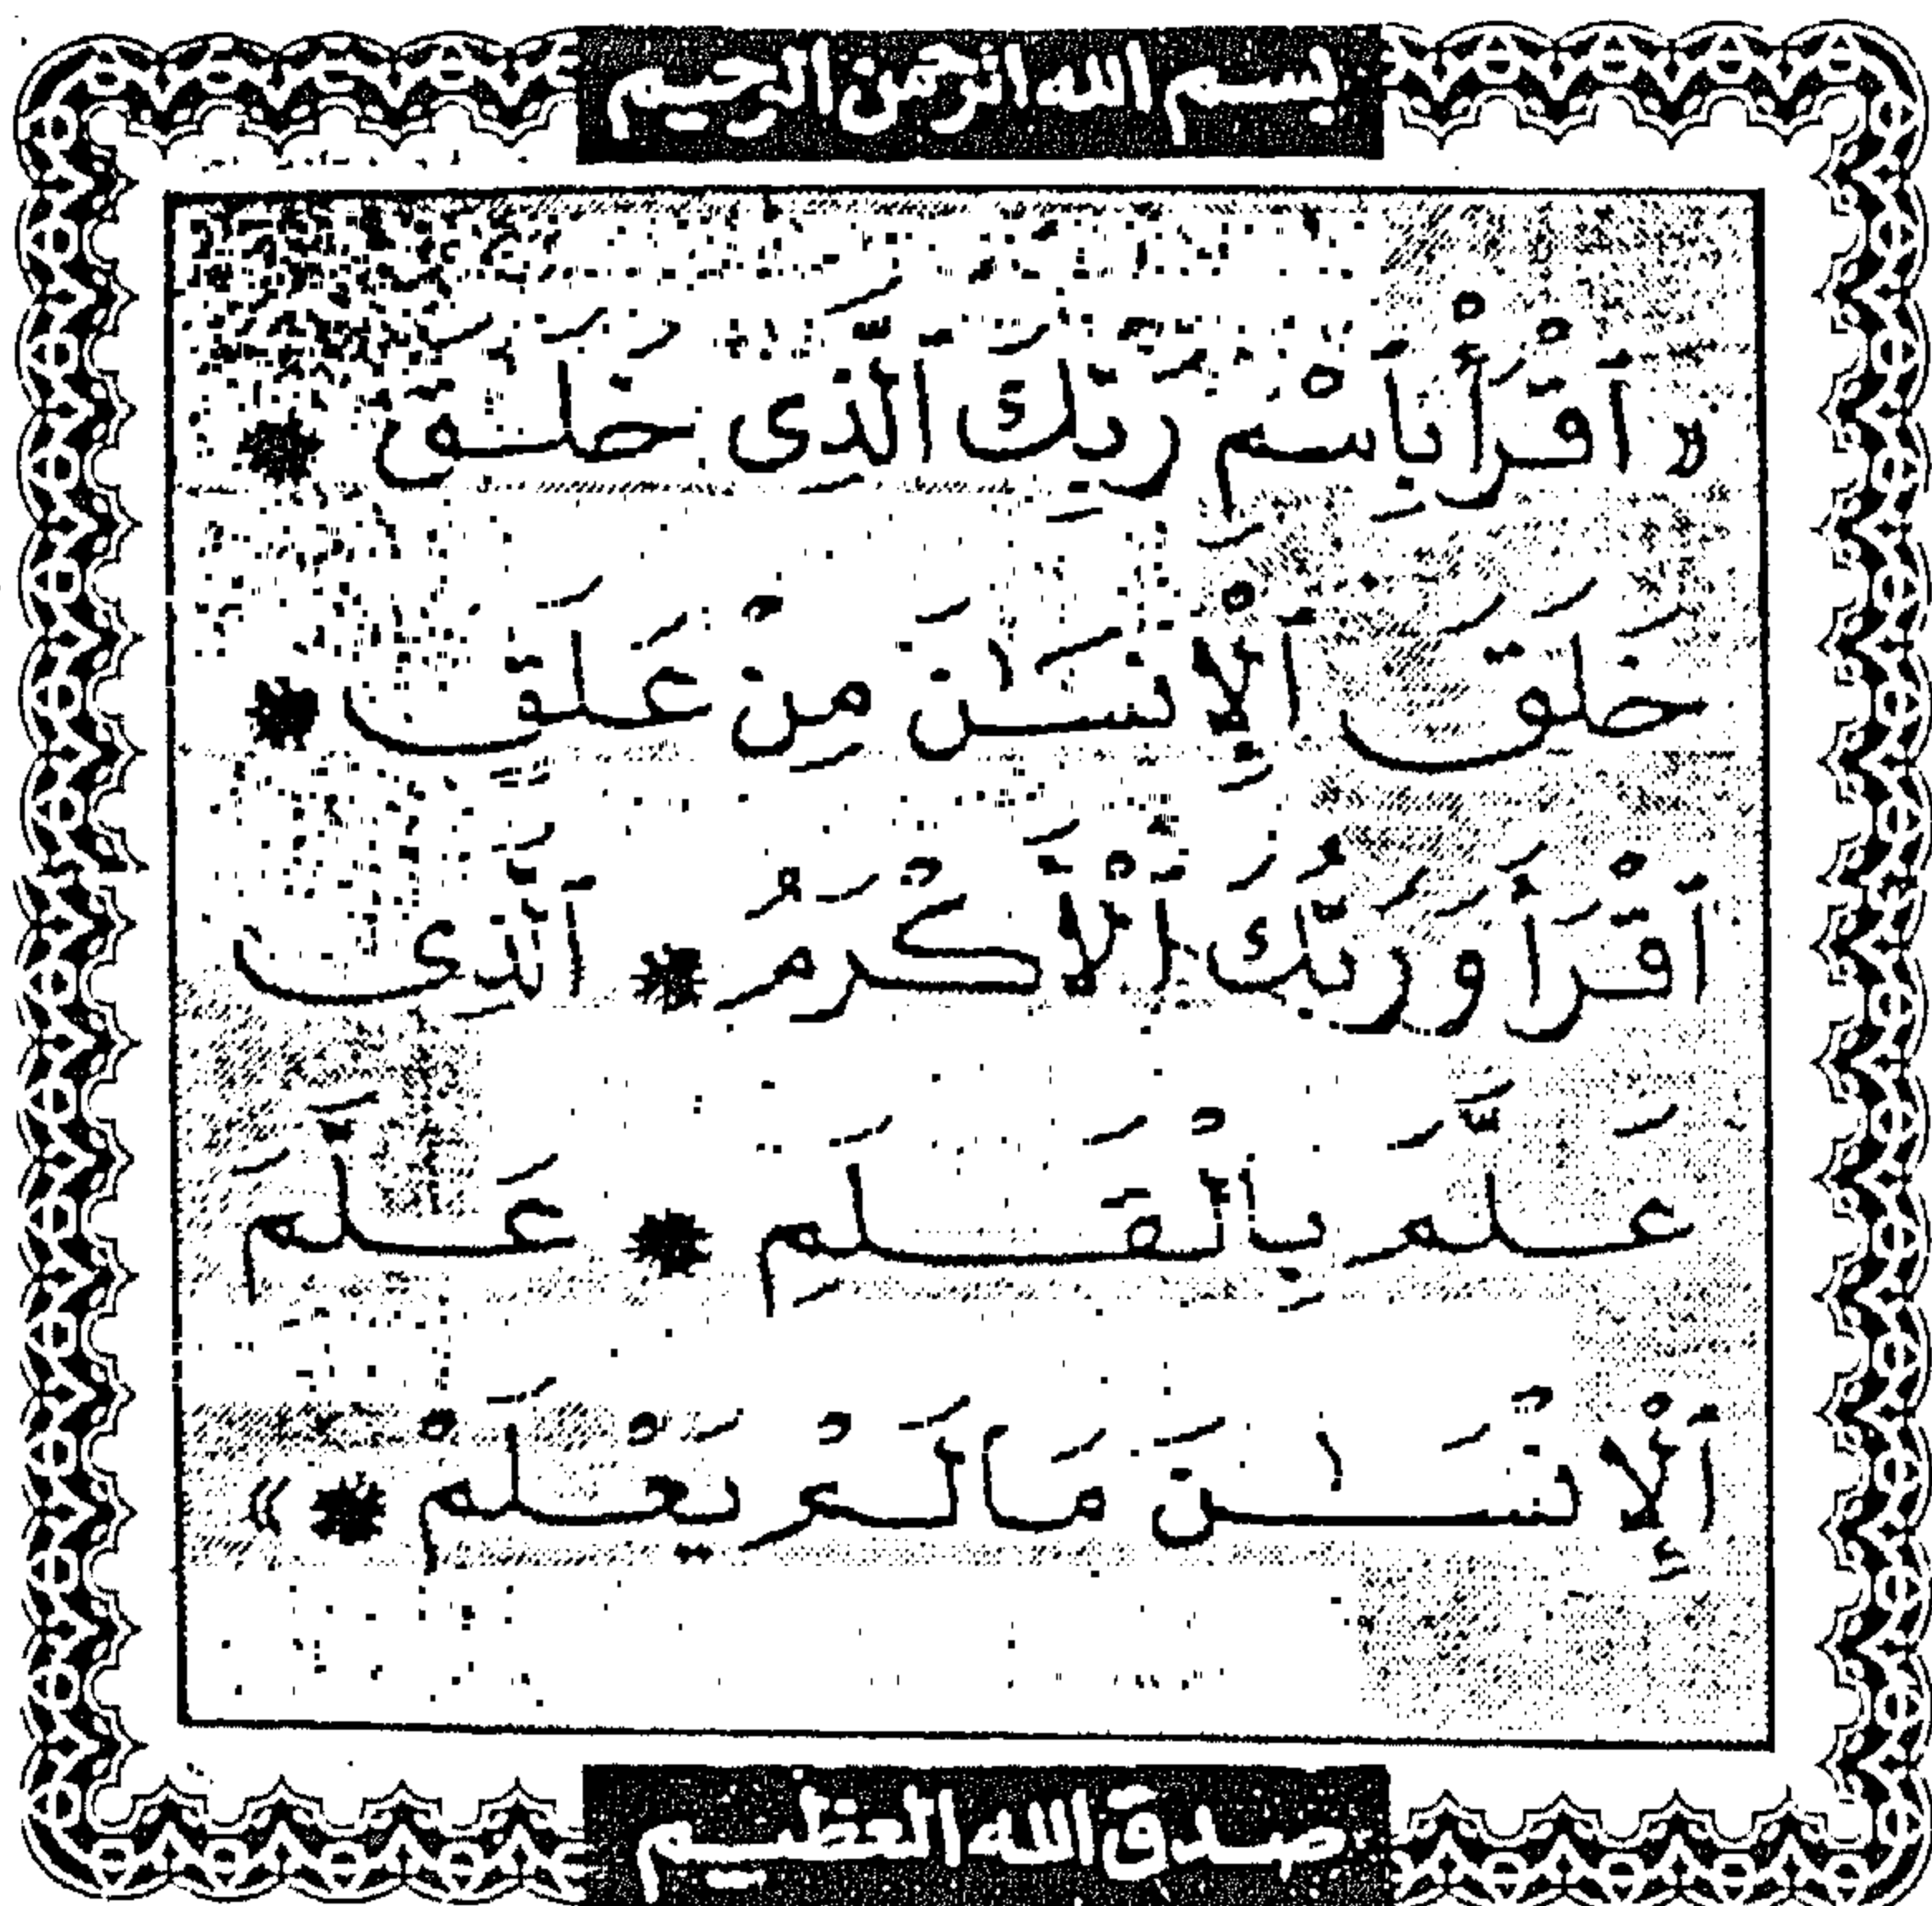 بسم الله الرحمن الرحيم
« ٱقْرَأْ بِٱسْمِ رَبِّكَ ٱلَّذِى خَلَقَ *
خَلَقَ ٱلْإِنسَٰنَ مِنْ عَلَقٍ *
ٱقْرَأْ وَرَبُّكَ ٱلْأَكْرَمُ * ٱلَّذِى
عَلَّمَ بِٱلْقَلَمِ * عَلَّمَ
ٱلْإِنْسَٰنَ مَا لَمْ يَعْلَمْ * »
صدق الله العظيم